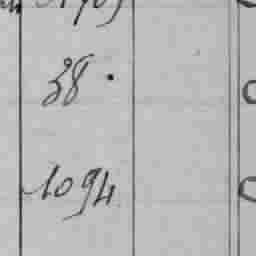 38.
1094